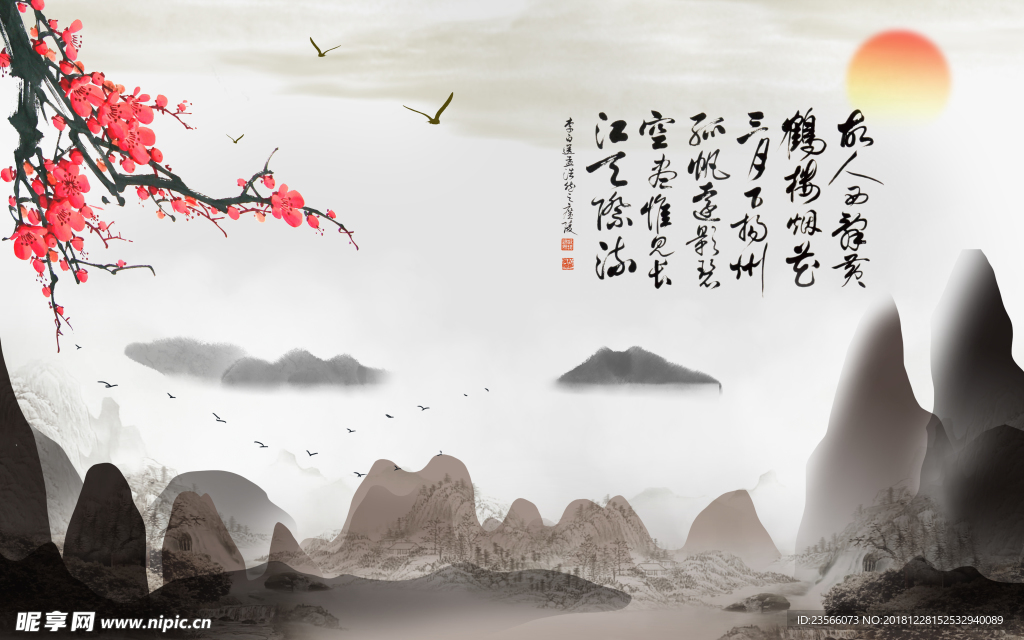 故人西辭黃
鶴樓烟花
三月下揚州
孤帆遠影碧
空盡惟見長
江天際流
李白送孟浩然之廣陵
昵享网 www.nipic.cn
ID:23566073 NO:20181228152532940089